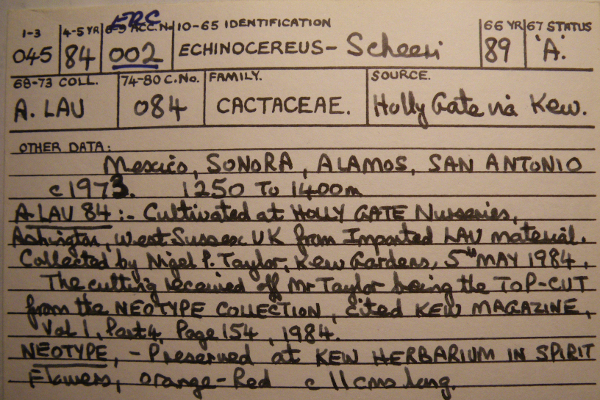 ERC
1-3 4-5 YR 6-9 ACC.No 10-65 IDENTIFICATION 66 YR 67 STATUS
045 84 002 ECHINOCEREUS - Scheeri 89 'A'
68-73 COLL. 74-80 C.No. FAMILY. SOURCE.
A. LAU 084 CACTACEAE. Holly Gate via Kew.
OTHER DATA:
Mexico, SONORA, ALAMOS, SAN ANTONIO
c 1973. 1250 To 1400m
A. LAU 84 :- Cultivated at HOLLY GATE Nurseries,
Ashington, West Sussex UK from Imported LAU material.
Collected by Nigel P. Taylor, Kew Gardens, 5th MAY 1984.
The cutting received off Mr Taylor being the ToP-CUT
from the NEOTYPE COLLECTION, Cited KEW MAGAZINE,
Vol 1, Part 4, Page 154, 1984.
NEOTYPE, - Preserved at KEW HERBARIUM IN SPIRIT
Flowers, orange-Red c 11 cms long.